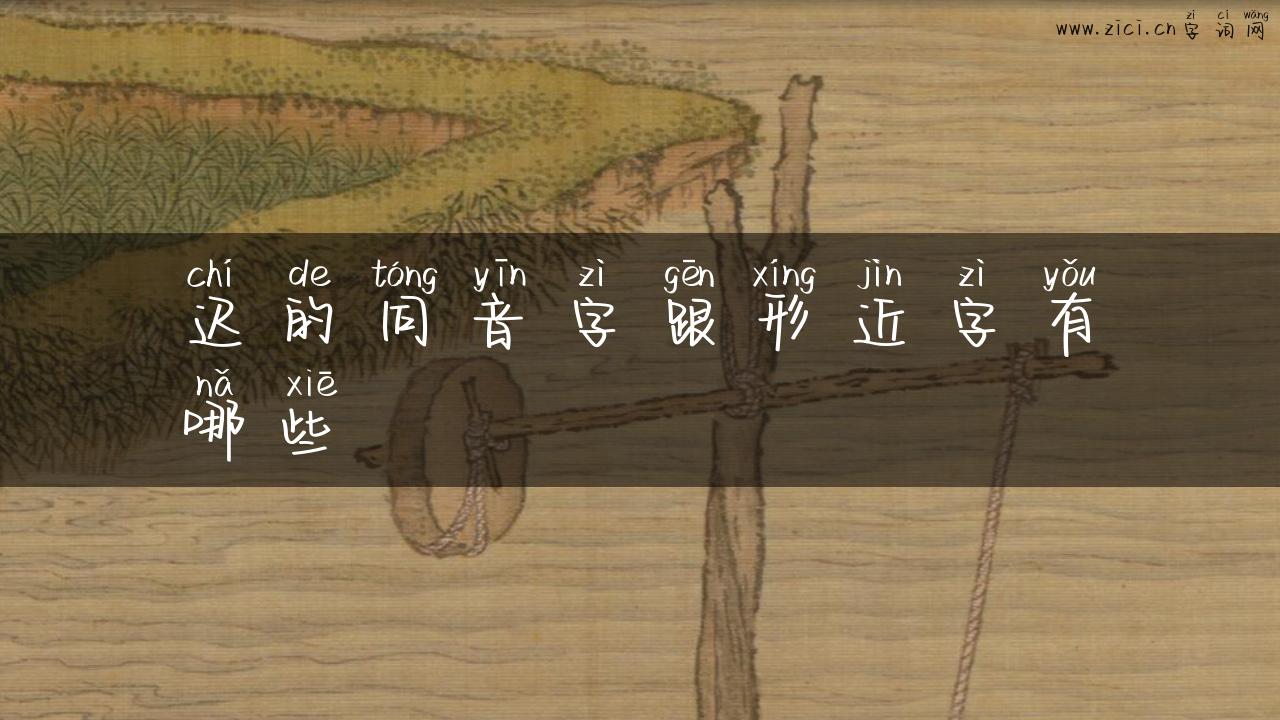 zì cí wǎng
www.zici.cn 字 词 网
chí de tóng yīn zì gēn xíng jìn zì yǒu
迟 的 同 音 字 跟 形 近 字 有
nǎ xiē
哪 些